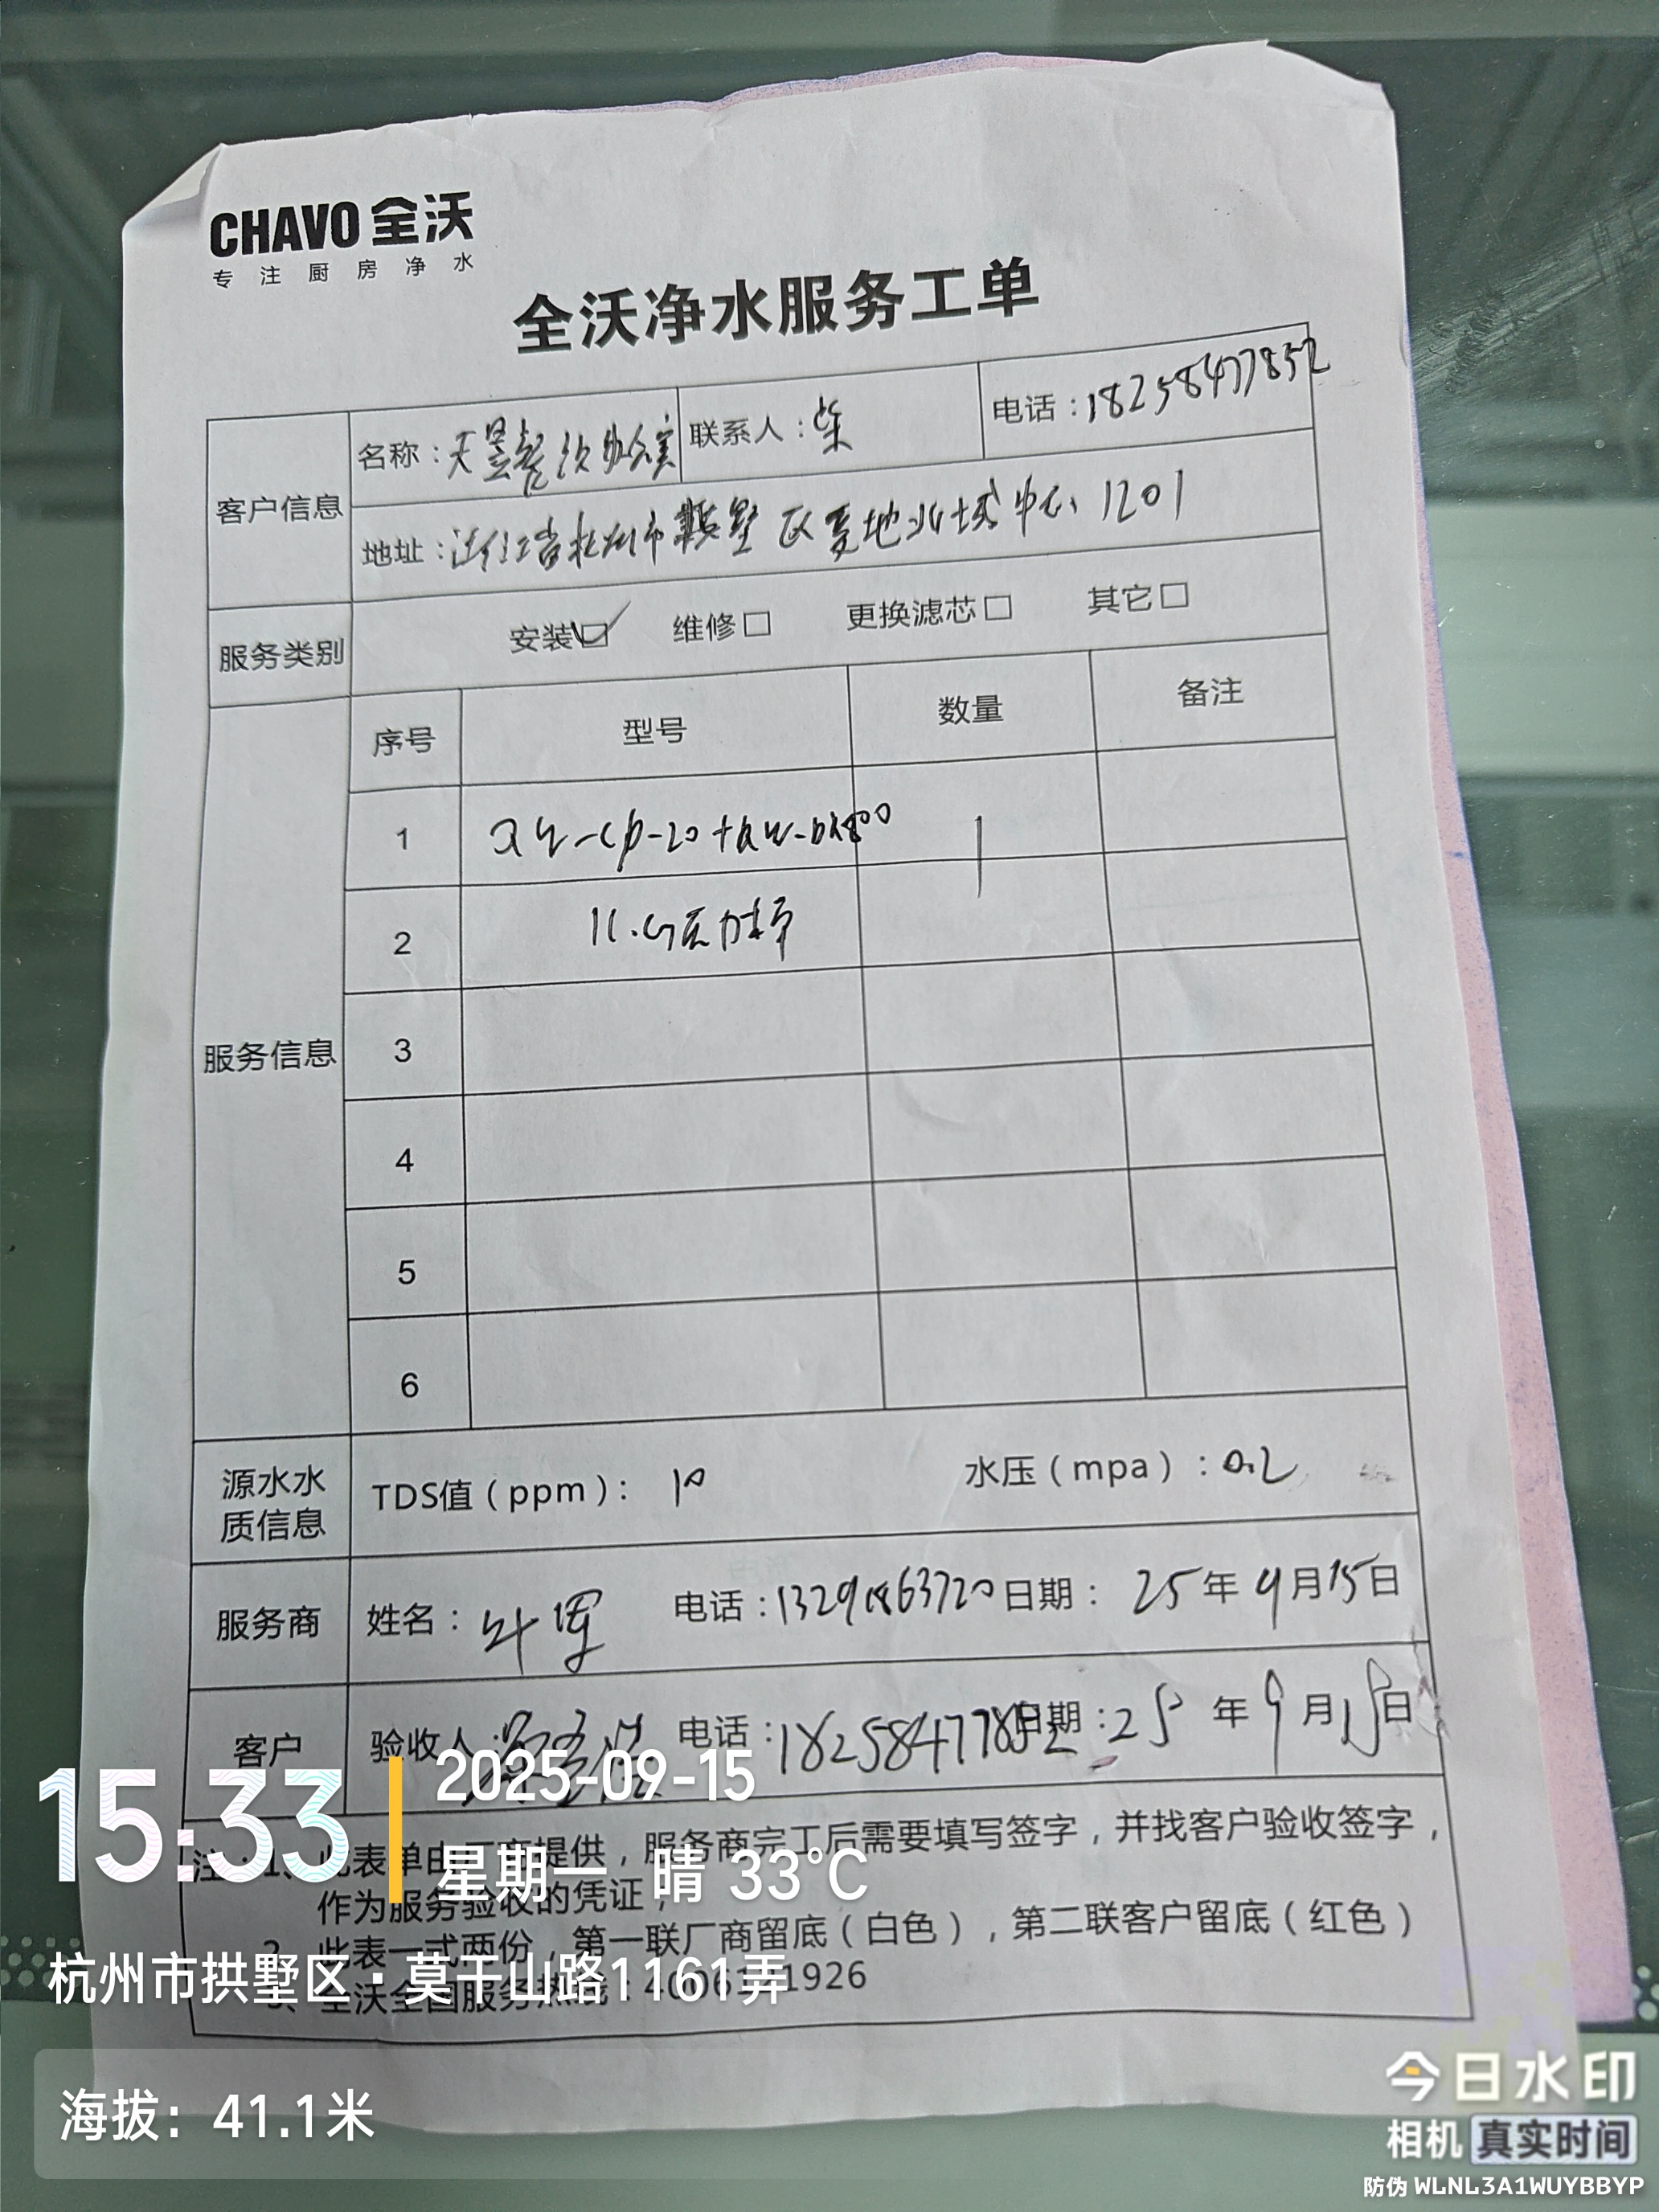 CHAVO 全沃
专注厨房净水
全沃净水服务工单
客户信息
名称：天昱餐饮
联系人：柴
电话：18258477852
地址：浙江省杭州市拱墅区 地北城中心 1201
服务类别
安装☑ 维修□ 更换滤芯□ 其它□
服务信息
序号 型号 数量 备注
1 QW-CP-20+QW- 1
2 11.G压力桶
3
4
5
6
源水水质信息
TDS值（ppm）： 10 水压（mpa）：0.2
服务商
姓名：叶军 电话：13291863720 日期： 25年9月15日
客户
验收人： 电话：18258477852 日期：25年9月15日
注：1、此表单由厂商提供，服务商完工后需要填写签字，并找客户验收签字，
作为服务验收的凭证；
2、此表一式两份，第一联厂商留底（白色），第二联客户留底（红色）
3、全沃全国服务热线：4006121926
15:33
2025-09-15
星期一 晴 33°C
杭州市拱墅区·莫干山路1161弄
海拔：41.1米
今日水印
相机 真实时间
防伪 WLNL3A1WUYBBYP